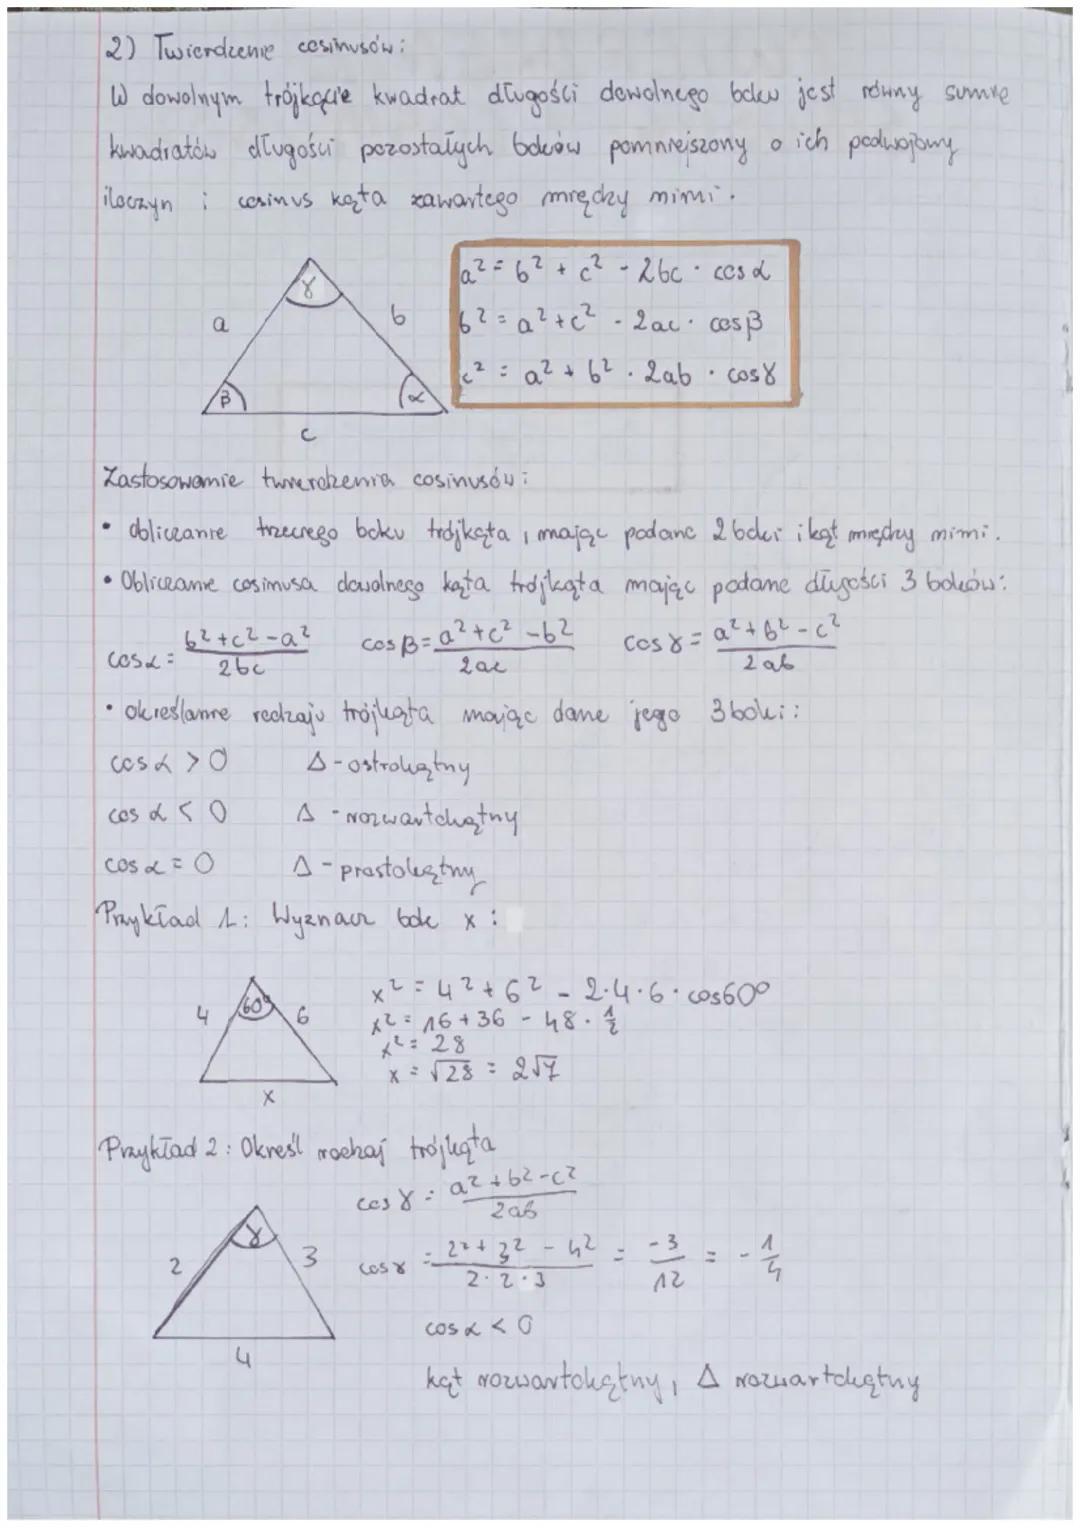 2) Twierdzenie cosinusów:
W dowolnym trójkącie kwadrat długości dowolnego boku jest równy sumie
kwadratów długości pozostałych boków pomniejszony o ich podwojony
iloczyn i cosinus kąta zawartego między nimi.
γ
a
b
β
α
c
a² = b² + c² - 2bc · cos α
b² = a² + c² - 2ac · cos β
c² = a² + b² · 2ab · cos γ
Zastosowanie twierdzenia cosinusów:
• obliczanie trzeciego boku trójkąta, mając podane 2 boki i kąt między nimi.
• Obliczanie cosinusa dowolnego kąta trójkąta mając podane długości 3 boków:
cos α = (b² + c² - a²)/(2bc) cos β = (a² + c² - b²)/(2ac) cos γ = (a² + b² - c²)/(2ab)
• określanie rodzaju trójkąta mając dane jego 3 boki:
cos α > 0 Δ - ostrokątny
cos α < 0 Δ - rozwartokątny
cos α = 0 Δ - prostokątny
Przykład 1: Wyznacz bok x:
60°
4
6
x
x² = 4² + 6² - 2·4·6·cos60°
x² = 16 + 36 - 48 · 1/2
x² = 28
x = √28 = 2√7
Przykład 2: Określ rodzaj trójkąta
γ
2
3
4
cos γ = (a² + b² - c²)/(2ab)
cos γ = (2² + 3² - 4²)/(2·2·3) = -3/12 = -1/4
cos α < 0
kąt rozwartokątny, Δ rozwartokątny